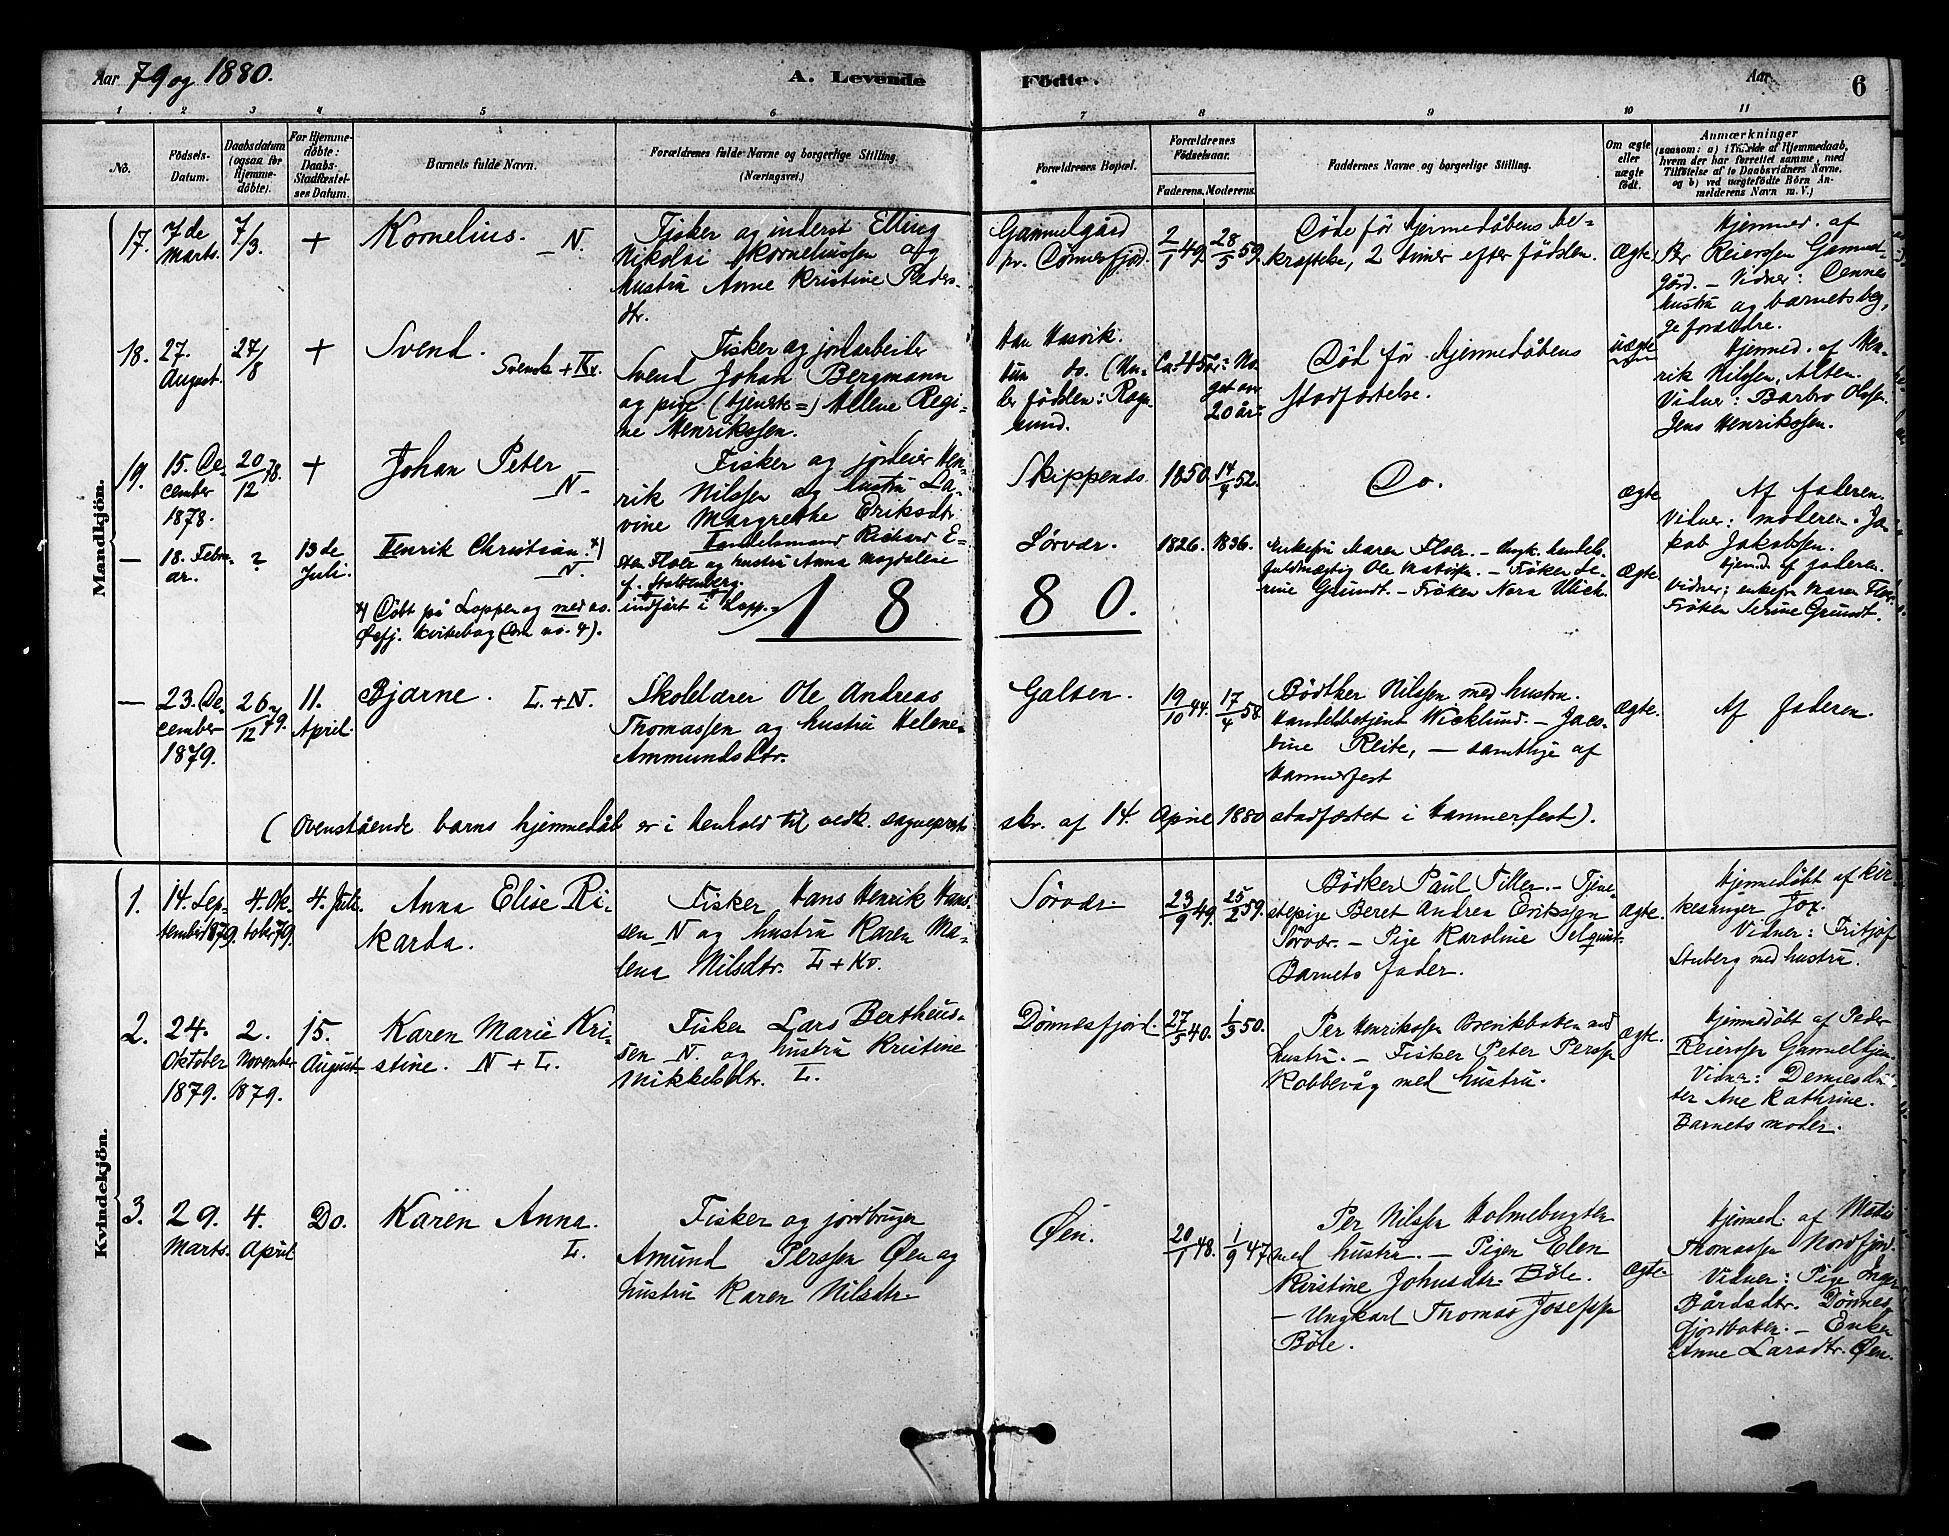 Aar 79 og 1880.
A. Levende Födte.
Aar
6
1 2 3 4 5 6 7 8 9 10 11
No.
Födsels-
Datum.
Daabsdatum
(ogsaa for
Hjemme-
döbte).
For Hjemme-
döbte:
Daabs-
Stadfæstel-
ses Datum.
Barnets fulde Navn.
Forældrenes fulde Navne og borgerlige Stilling.
(Næringsvei.)
Forældrenes Bopæl.
Forældrenes
Födselsaar.
Faderens. Moderens.
Faddernes Navne og borgerlige Stilling.
Om ægte
eller
uægte
födt.
Anmærkninger
(saasom: a) i Tilfælde af Hjemmedaab,
hvem der har forrettet samme, med
Tilföielse af to Daabsvidners Navne,
og b) ved uægtefödte Börn An-
melderens Navn m. V.)
Mandkjön.
17.
7de
Marts.
7/3.
+
Kornelius.
N.
Fisker og inderst Elling
Nikolai Korneliussen og
hustru Anne Kristine Peders-
dtr.
Gammelgård
pr. Dönnesfjord.
2/1 49.
28/5 59.
Döde för hjemmedåbens be-
kræftelse, 2 timer efter födslen.
Ægte.
Hjemmed. af
Per Reiersen Gammel-
gård. - Vidner: Dennes
hustru og barnets beg-
ge forældre.
18.
27.
August.
27/8
+
Svend.
Svensk + Kv.
Fisker og jordarbeider
Svend Johan Bergmann
og pige (tjenste=) Helene Regi-
ne Henrikssen.
Han Hasvik.
hun do. (Un-
der födslen: Rogn-
sund.
Ca: 45
Cr: No-
get over
20 år:
Död för hjemmedåbens
stadfæstelse.
uægte
Hjemmed. af Hen-
rik Nilssen, Alten.
Vidner: Barbro Olssen.
Jens Henrikssen.
19.
15. De-
cember
1878.
20/12 78.
+
Johan Peter
N.
Fisker og jordeier Hen-
rik Nilssen og hustru La-
vine Margrethe Eriksdtr.
Skippernds.
1850.
14/4 52.
Do.
ægte
Af faderen.
Vidner: moderen. Ja-
kob Jakobssen.
18. Febru-
ar.
?
13de
Juli.
Henrik Christian. x)
N.
Handelsmand Richard E-
sten Floer og hustru Anna Magdalene
f. Stoltenberg.
indfört i Lopp.
Sörvær.
1826.
1836.
Enkefru Maren Floer. - Ungk. handels-
fuldmægtig Ole Mathisen. - Fröken Se-
rine Grundt. - Fröken Nora Ulich.
Ægte.
hjemd. af faderen.
Vidner; enkefru Maren Floer.
Fröken Serine Grundt.
x) Döbt på Loppen og med as.
Öxfj. Kvitebog (Om no. 4).
1 8 8 0.
23. De-
cember
1879.
26/12 79.
11.
April.
Bjarne.
L. + N.
Skolelærer Ole Andreas
Thomassen og hustru Helene
Ammundsdtr.
Galten.
19/10 44.
17/4 58.
Bödtker Nilssen med hustru.
Handelsbetjent Wicklund. - Jaco-
bine Reite, - samtlige af
Hammerfest
ægte.
Af faderen.
(Ovenstående barns hjemmedåb er i henhold til vedk. sogneprests
skr. af 14. April 1880 stadfæstet i Hammerfest).
Kvindekjön.
1.
14. Sep-
tember 1879.
4. Ok-
tober 79.
4. Juli.
Anna Elise Ri-
karda.
Fisker Hans Henrik Hans-
sen N og hustru Karen Ma-
lena Nilsdtr. L + Kv.
Sörvær.
23/9 49.
25/2 59.
Bödker Paul Tiller. - Tjene-
stepige Beret Andrea Erikssen
Sörvær. - Pige Karoline Selquist
Barnets fader.
Ægte.
Hjemmedöbt af kir-
kesanger Fox.
Vidner: Fritjof
Stuberg med hustru.
2.
24.
Oktober
1879.
2.
November
1879.
15.
August
Karen Marie Kri-
stine. N + L.
Fisker Lars Bertheus-
sen N. og hustru Kristine
Mikkelsdtr. L.
Dönnesfjord.
27/5 40.
1/3 50.
Per Henrikssen Brenikboten med
hustru. - Fisker Peter Perssen
Kobbevåg med hustru.
Ægte.
Hjemmedöbt af Peder
Reierssen Gammelhjem
Vidner: Dennes dat-
ter Ane Kathrine.
Barnets moder.
3.
29.
Marts.
4.
April
Do.
Karen Anna.
L.
Fisker og jordbruger
Amund Perssen Øen og
hustru Karen Nilsdtr.
Øen.
20/1 48.
1/9 47.
Per Nilssen Holmebugten
med hustru. - Pigen Elen
Kirstine Johnsdtr. Böle.
- Ungkarl Thomas Josefssen
Böle.
ægte.
Hjemmed. af Mathis
Thomassen Nordfjord.
Vidner: Pige Inger
Bårdsdtr. Dönnes-
fjordboten. - Enken
Anne Larsdtr. Øen.